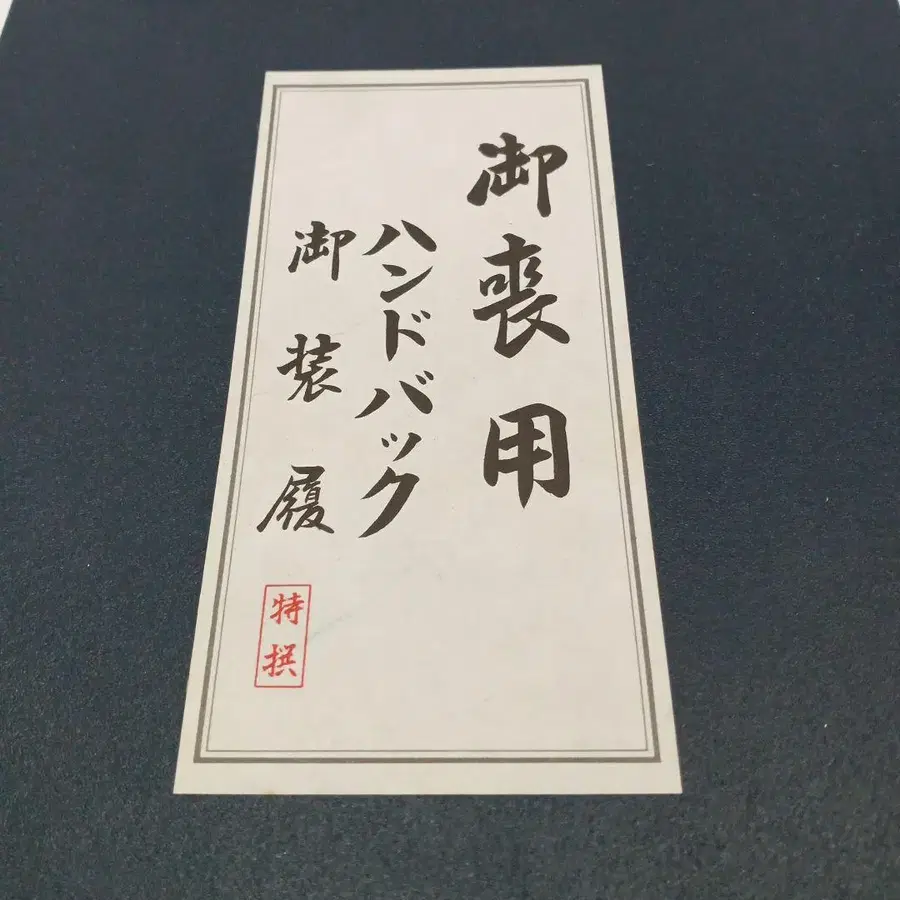 御喪用
ハンドバック
御装履
特撰